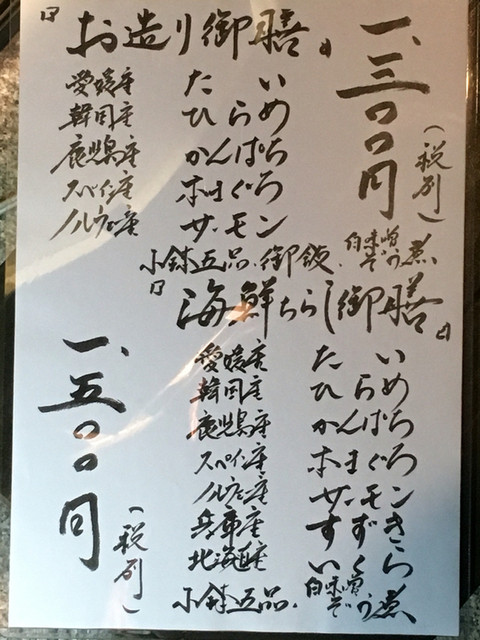 『お造り御膳』
一、三〇〇円
(税別)
愛媛産 たい
韓国産 ひらめ
鹿児島産 かんぱち
スペイン産 本まぐろ
ノルウェー産 サーモン
小鉢五品・御飯・白味噌ぞう煮
『海鮮ちらし御膳』
愛媛産 たい
韓国産 ひらめ
鹿児島産 かんぱち
スペイン産 本まぐろ
ノルウェー産 サーモン
兵庫産 すずき
北海道産 いくら
小鉢五品・白味噌ぞう煮
一、五〇〇円
(税別)